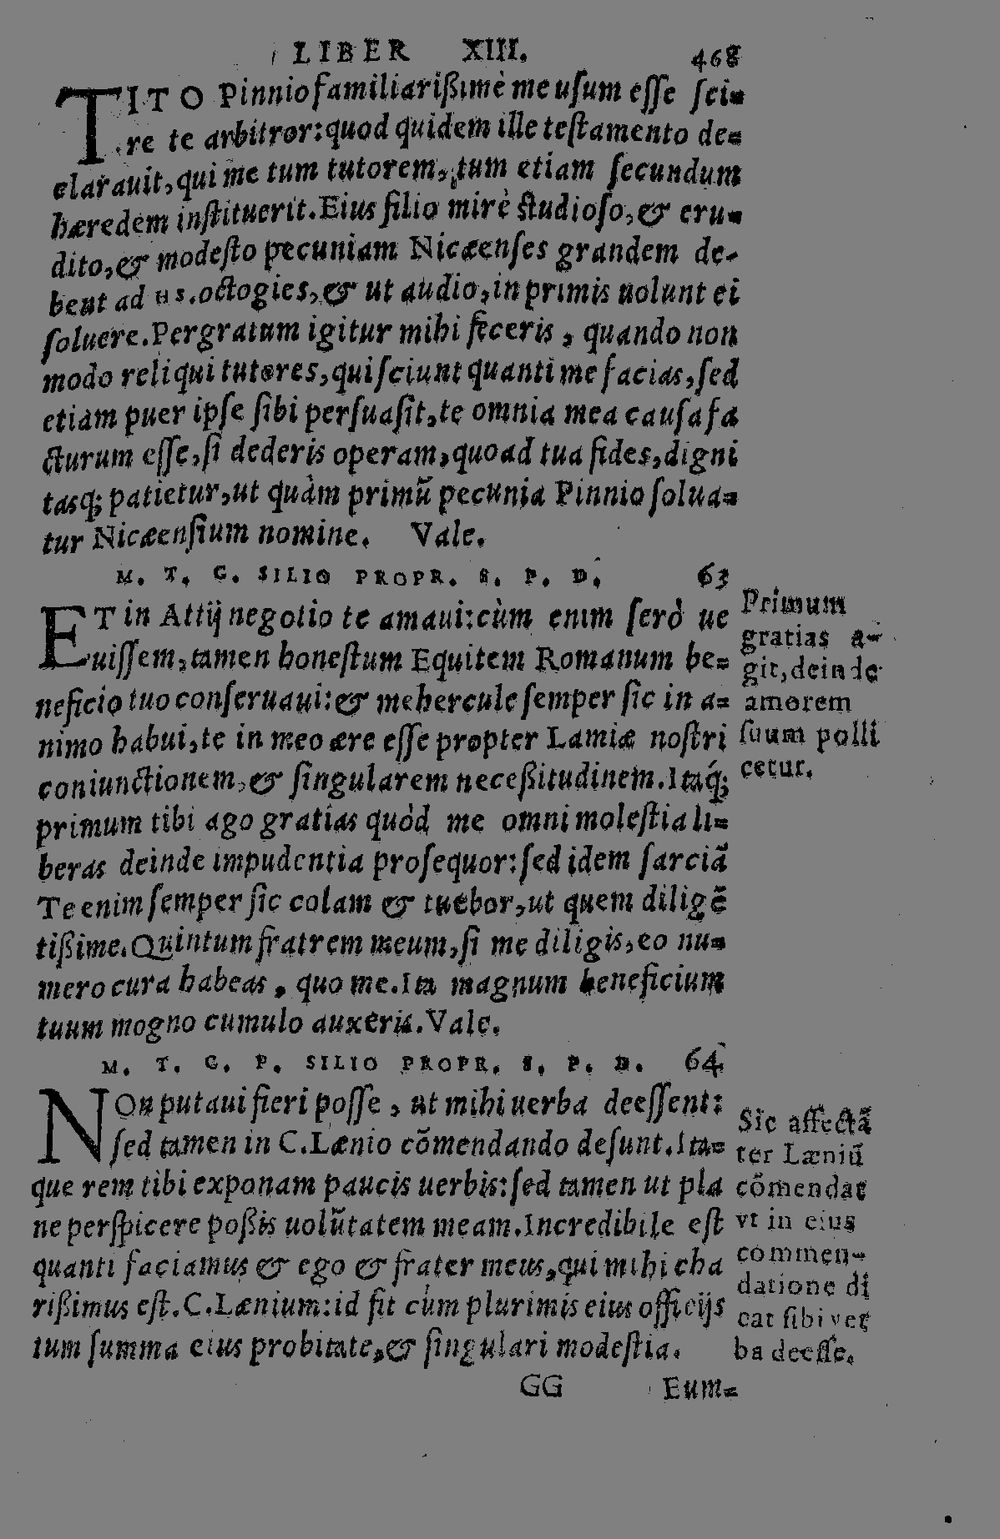 LIBER XIII. 468
TITO Pinnio familiarißimè me usum esse sci-
re te arbitror: quod quidem ille testamento de-
clarauit, qui me tum tutorem, tum etiam secundum
hæredem instituerit. Eius filio mirè studioso, & eru-
dito, & modesto pecuniam Nicæenses grandem de-
bent ad octogies, & ut audio, in primis uolunt ei
soluere. Pergratum igitur mihi feceris, quando non
modo reliqui tutores, qui sciunt quanti me facias, sed
etiam puer ipse sibi persuasit, te omnia mea causa fa
cturum esse, si dederis operam, quoad tua fides, digni
tasq; patietur, ut quàm primũ pecunia Pinnio solua-
tur Nicæensium nomine. Vale.
M. T. C. SILIO PROPR. S. P. D. 63
ET in Attij negotio te amaui: cùm enim serò ue
uissem, tamen honestum Equitem Romanum be-
neficio tuo conseruaui: & mehercule semper sic in a-
nimo habui, te in meo ære esse propter Lamiæ nostri
coniunctionem, & singularem neceßitudinem. Itaq́;
primum tibi ago gratias quòd me omni molestia li-
beras deinde impudentia prosequor: sed idem sarciã
Te enim semper sic colam & tuebor, ut quem diligẽ
tißime. Quintum fratrem meum, si me diligis, eo nu-
mero cura habeas, quo me. Ita magnum beneficium
tuum mogno cumulo auxeris. Vale.
Primum
gratias a-
git, deinde
amorem
suum polli
cetur.
M. T. C. P. SILIO PROPR. S. P. D. 64
NOn putaui fieri posse, ut mihi uerba deessent:
sed tamen in C. Lænio cõmendando desunt. Ita-
que rem tibi exponam paucis uerbis: sed tamen ut pla
ne perspicere poßis uolũtatem meam. Incredibile est
quanti faciamus & ego & frater meus, qui mihi cha
rißimus est. C. Lænium: id fit cùm plurimis eius officijs
tum summa eius probitate, & singulari modestia.
Sic affectã
ter Læniũ
cõmendat
vt in eius
commen-
datione di
cat sibi ver
ba deesse.
GG Eum-